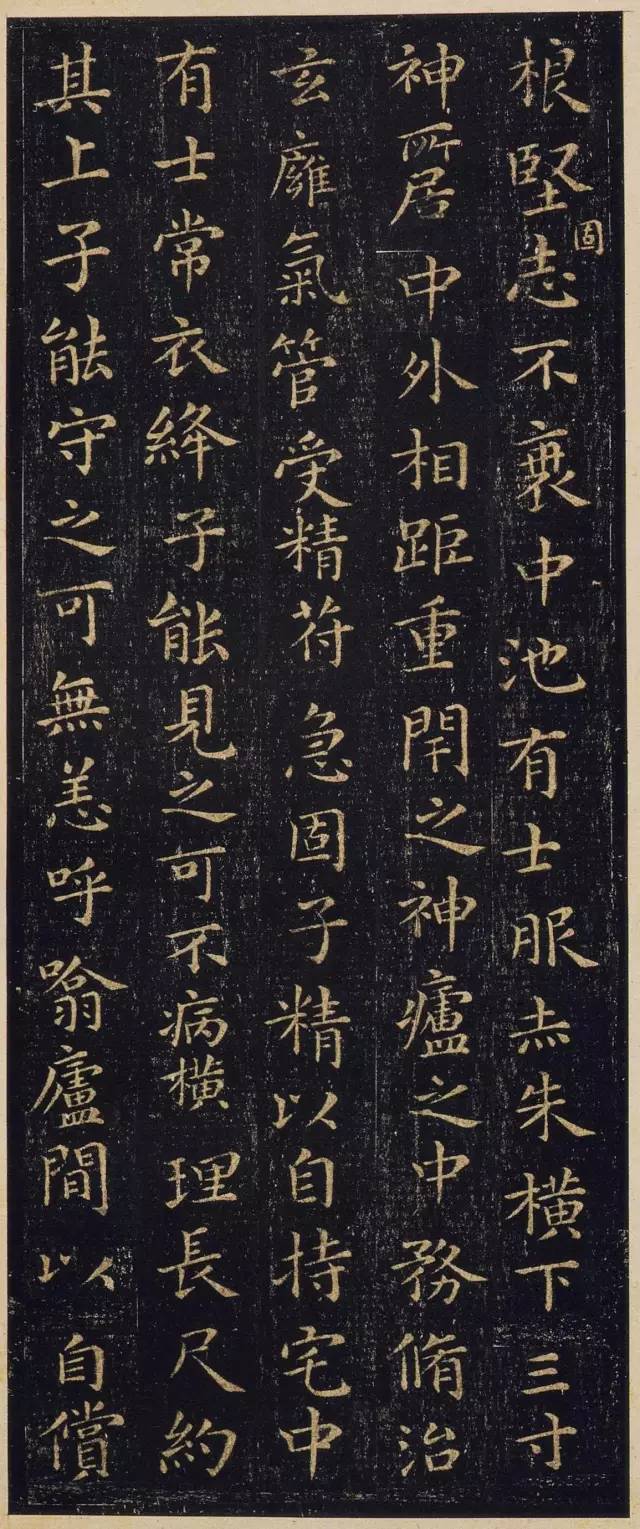 根堅志不衰中池有士服赤朱橫下三寸
固
神所居中外相距重閇之神廬之中務脩治
玄癰氣管受精苻急固子精以自持宅中
有士常衣絳子能見之可不病橫理長尺約
其上子能守之可無恙呼噏廬間以自償